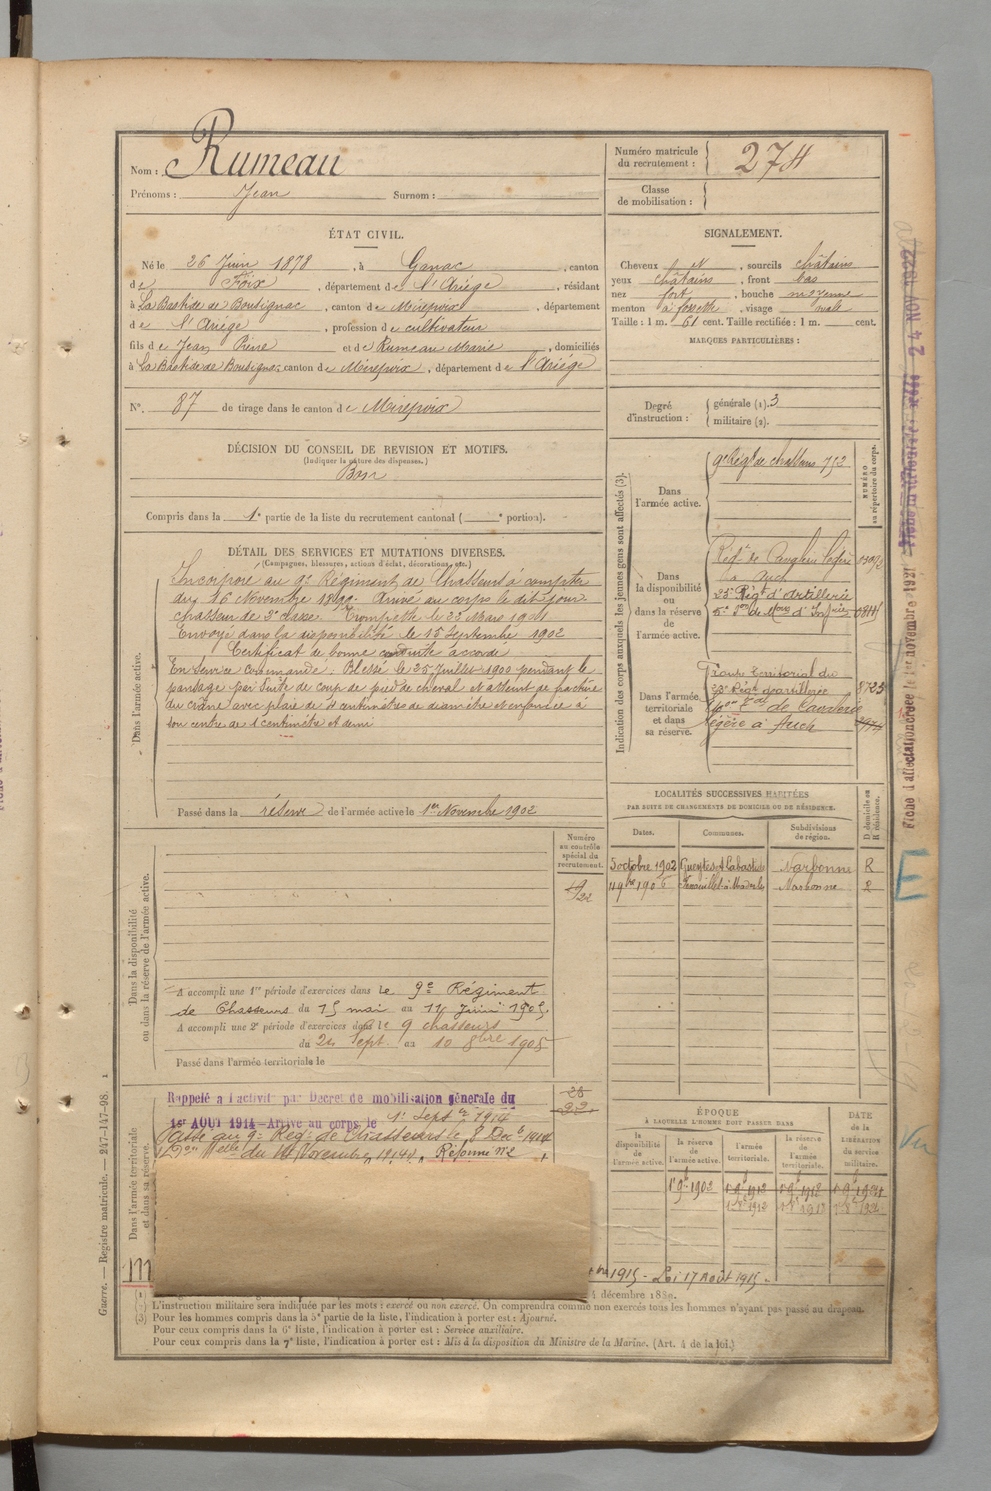 Nom : Rumeau
Prénoms : Jean Surnom :
Numéro matricule du recrutement : 274
Classe de mobilisation :
ÉTAT CIVIL.
Né le 26 Juin 1878, à Ganac, canton
de Foix, département de l'Ariège, résidant
à La Bastide de Bousignac, canton de Mirepoix, département
de l'Ariège, profession de cultivateur
fils de Jean Pierre et de Rumeau Marie, domiciliés
à La Bastide de Bousignac, canton de Mirepoix, département de l'Ariège
N°. 87 de tirage dans le canton de Mirepoix
SIGNALEMENT.
Cheveux et sourcils châtains
yeux châtains, front bas
nez fort, bouche moyenne
menton à fossette, visage ovale
Taille : 1 m. 61 cent. Taille rectifiée : 1 m. cent.
MARQUES PARTICULIÈRES :
Degré d'instruction : générale (1). 3
militaire (2).
DÉCISION DU CONSEIL DE REVISION ET MOTIFS.
(Indiquer la nature des dispenses.)
Bon
Compris dans la 1e partie de la liste du recrutement cantonal ( e portion).
DÉTAIL DES SERVICES ET MUTATIONS DIVERSES.
(Campagnes, blessures, actions d'éclat, décorations, etc.)
Dans l'armée active.
Incorporé au 9e Régiment de Chasseurs à compter
du 16 Novembre 1899. Arrivé au corps le dit jour
chasseur de 2e classe. Trompette le 22 Mars 1901
Envoyé dans la disponibilité le 15 Septembre 1902
Certificat de bonne conduite accordé
En service commandé. Blessé le 25 Juillet 1900 pendant le
pansage par suite de coup de pied de cheval et atteint de fracture
du crâne avec plaie de 4 centimètres de diamètre et enfoncée à
son centre de 1 centimètre et demi
Passé dans la réserve de l'armée active le 1er Novembre 1902
Indication des corps auxquels les jeunes gens sont affectés (3).
NUMÉRO au répertoire du corps.
Dans l'armée active.
9e Régt de chasseurs 752
Dans la disponibilité ou dans la réserve de l'armée active.
à Auch
23e Régt d'Artillerie
Dans l'armée territoriale et dans sa réserve.
Train territorial du
23e Régt d'artillerie
de Cavalerie
légère à Auch
LOCALITÉS SUCCESSIVES HABITÉES
PAR SUITE DE CHANGEMENTS DE DOMICILE OU DE RÉSIDENCE.
Dates. Communes. Subdivisions de région. D domicile ou R résidence.
5 octobre 1902 Narbonne R
Narbonne R
Numéro au contrôle spécial du recrutement.
Dans la disponibilité ou dans la réserve de l'armée active.
A accompli une 1re période d'exercices dans le 9e Régiment
de Chasseurs du 15 mai au 11 Juin 1905.
A accompli une 2e période d'exercices dans le 9 chasseurs
du 24 Sept. au 10 8bre 1905
Passé dans l'armée territoriale le
Dans l'armée territoriale et dans sa réserve.
Rappelé à l'activité par Décret de mobilisation générale du
1er AOUT 1914 - Arrivé au corps le 1er Septbre 1914
Passé au 9e Régt de Chasseurs le 8 Décb 1914
Réformé n° 2
ÉPOQUE
A LAQUELLE L'HOMME DOIT PASSER DANS
la disponibilité de l'armée active. la réserve de l'armée active. l'armée territoriale. la réserve de l'armée territoriale.
DATE de la LIBÉRATION du service militaire.
1915 - Loi 17 Août 1915 -
4 décembre 1889.
L'instruction militaire sera indiquée par les mots : exercé ou non exercé. On comprendra comme non exercés tous les hommes n'ayant pas passé au drapeau.
(3) Pour les hommes compris dans la 5e partie de la liste, l'indication à porter est : Ajourné.
Pour ceux compris dans la 6e liste, l'indication à porter est : Service auxiliaire.
Pour ceux compris dans la 7e liste, l'indication à porter est : Mis à la disposition du Ministre de la Marine. (Art. 4 de la loi.)
Guerre. — Registre matricule. — 247-147-98.
E